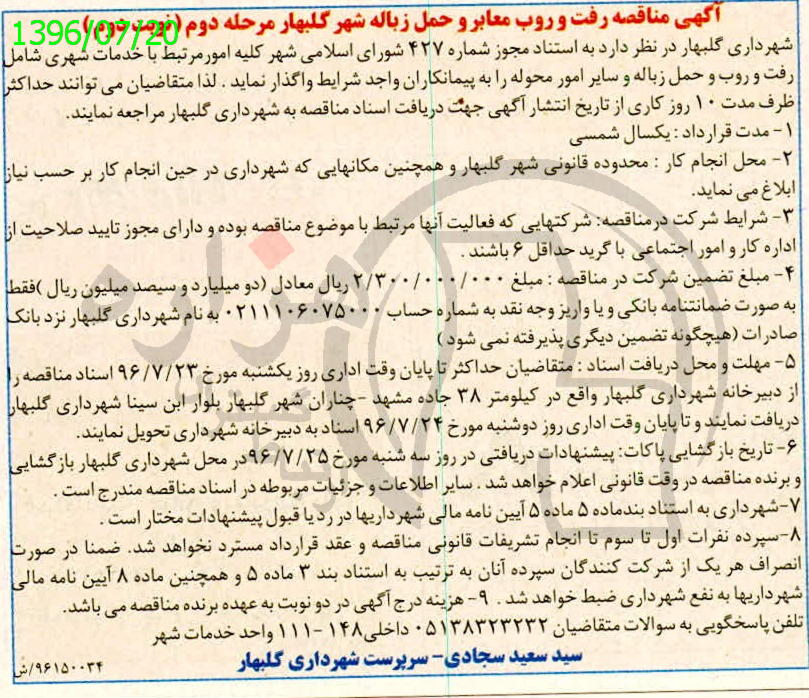 آگهی مناقصه رفت و روب معابر و حمل زباله شهر گلبهار مرحله دوم (نوبت دوم)
1396/07/20
شهرداری گلبهار در نظر دارد به استناد مجوز شماره ۴۲۷ شورای اسلامی شهر کلیه امور مرتبط با خدمات شهری شامل
رفت و روب و حمل زباله و سایر امور محوله را به پیمانکاران واجد شرایط واگذار نماید . لذا متقاضیان می توانند حداکثر
ظرف مدت ۱۰ روز کاری از تاریخ انتشار آگهی جهت دریافت اسناد مناقصه به شهرداری گلبهار مراجعه نمایند.
۱- مدت قرارداد : یکسال شمسی
۲- محل انجام کار : محدوده قانونی شهر گلبهار و همچنین مکانهایی که شهرداری در حین انجام کار بر حسب نیاز
ابلاغ می نماید.
۳- شرایط شرکت در مناقصه: شرکتهایی که فعالیت آنها مرتبط با موضوع مناقصه بوده و دارای مجوز تایید صلاحیت از
اداره کار و امور اجتماعی با گرید حداقل ۶ باشند .
۴- مبلغ تضمین شرکت در مناقصه : مبلغ ۲/۳۰۰/۰۰۰/۰۰۰ ریال معادل (دو میلیارد و سیصد میلیون ریال )فقط
به صورت ضمانتنامه بانکی و یا واریز وجه نقد به شماره حساب ۰۲۱۱۱۰۶۰۷۵۰۰۰ به نام شهرداری گلبهار نزد بانک
صادرات (هیچگونه تضمین دیگری پذیرفته نمی شود )
۵- مهلت و محل دریافت اسناد : متقاضیان حداکثر تا پایان وقت اداری روز یکشنبه مورخ ۹۶/۷/۲۳ اسناد مناقصه را
از دبیرخانه شهرداری گلبهار واقع در کیلومتر ۳۸ جاده مشهد -چناران شهر گلبهار بلوار ابن سینا شهرداری گلبهار
دریافت نمایند و تا پایان وقت اداری روز دوشنبه مورخ ۹۶/۷/۲۴ اسناد به دبیرخانه شهرداری تحویل نمایند.
۶- تاریخ بازگشایی پاکات: پیشنهادات دریافتی در روز سه شنبه مورخ ۹۶/۷/۲۵در محل شهرداری گلبهار بازگشایی
و برنده مناقصه در وقت قانونی اعلام خواهد شد . سایر اطلاعات و جزئیات مربوطه در اسناد مناقصه مندرج است .
۷-شهرداری به استناد بندماده ۵ ماده ۵ آیین نامه مالی شهرداریها در رد یا قبول پیشنهادات مختار است .
۸-سپرده نفرات اول تا سوم تا انجام تشریفات قانونی مناقصه و عقد قرارداد مسترد نخواهد شد. ضمنا در صورت
انصراف هر یک از شرکت کنندگان سپرده آنان به ترتیب به استناد بند ۳ ماده ۵ و همچنین ماده ۸ آیین نامه مالی
شهرداریها به نفع شهرداری ضبط خواهد شد . ۹- هزینه درج آگهی در دو نوبت به عهده برنده مناقصه می باشد.
تلفن پاسخگویی به سوالات متقاضیان ۰۵۱۳۸۳۲۳۲۳۲ داخلی۱۴۸ -۱۱۱ واحد خدمات شهر
سید سعید سجادی- سرپرست شهرداری گلبهار
۹۶۱۵۰۰۳۴/ش